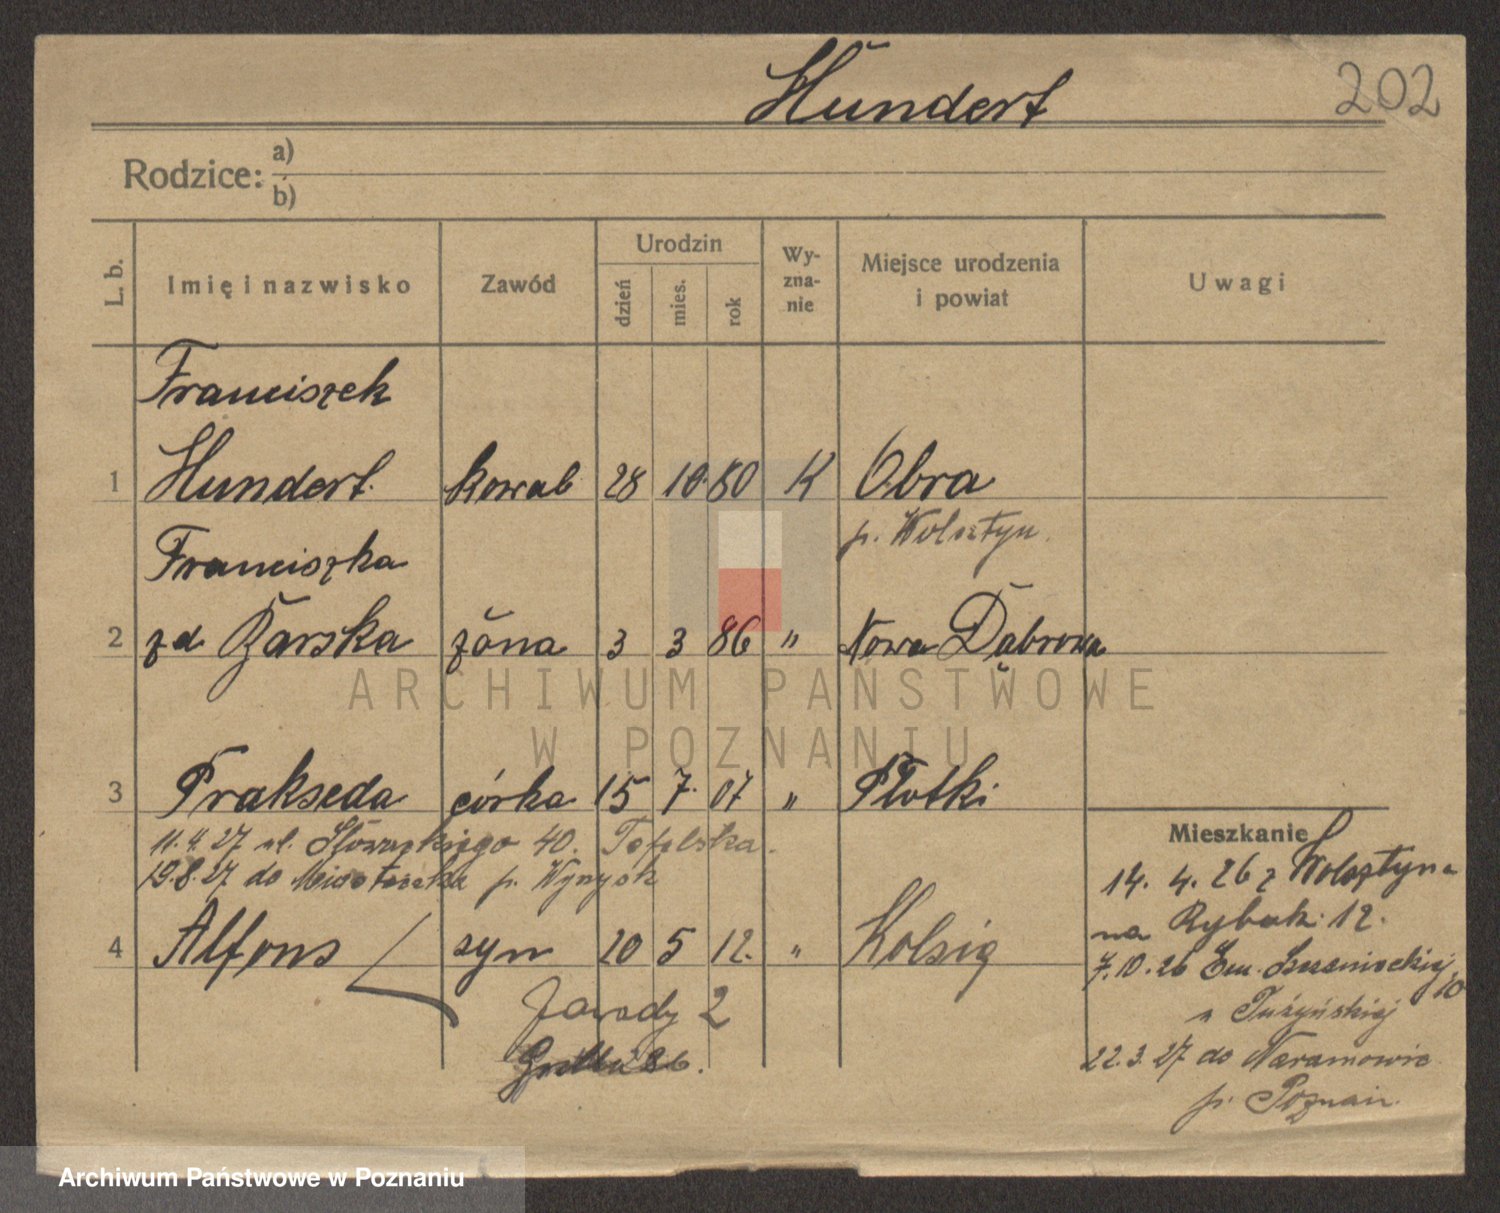 Hundert
202
Rodzice: a)
b)
L. b.
Imię i nazwisko
Zawód
Urodzin
dzień
mies.
rok
Wy-
zna-
nie
Miejsce urodzenia
i powiat
Uwagi
Franciszek
1 Hundert kowal 28 10. 80 K Obra
p. Wolsztyn.
Franciszka
2 zd Żarska żona 3 3 86 " Nowa Dąbrowa
3 Prakseda córka 15 7. 07 " Płotki
11.4.27 ul. Słowackiego 40.
19.8.27 do Miasteczka p. Wyrzysk
4 Alfons syn 20 5 12. " Kolsig
Zawady 2
Mieszkanie
14. 4. 26 z Wolsztyna
na Rybak. 12.
7.10.26 Em. Sczanieckiej 10
u
22.3.27 do Naramowic
p. Poznań.
ARCHIWUM PAŃSTWOWE
W POZNANIU
Archiwum Państwowe w Poznaniu